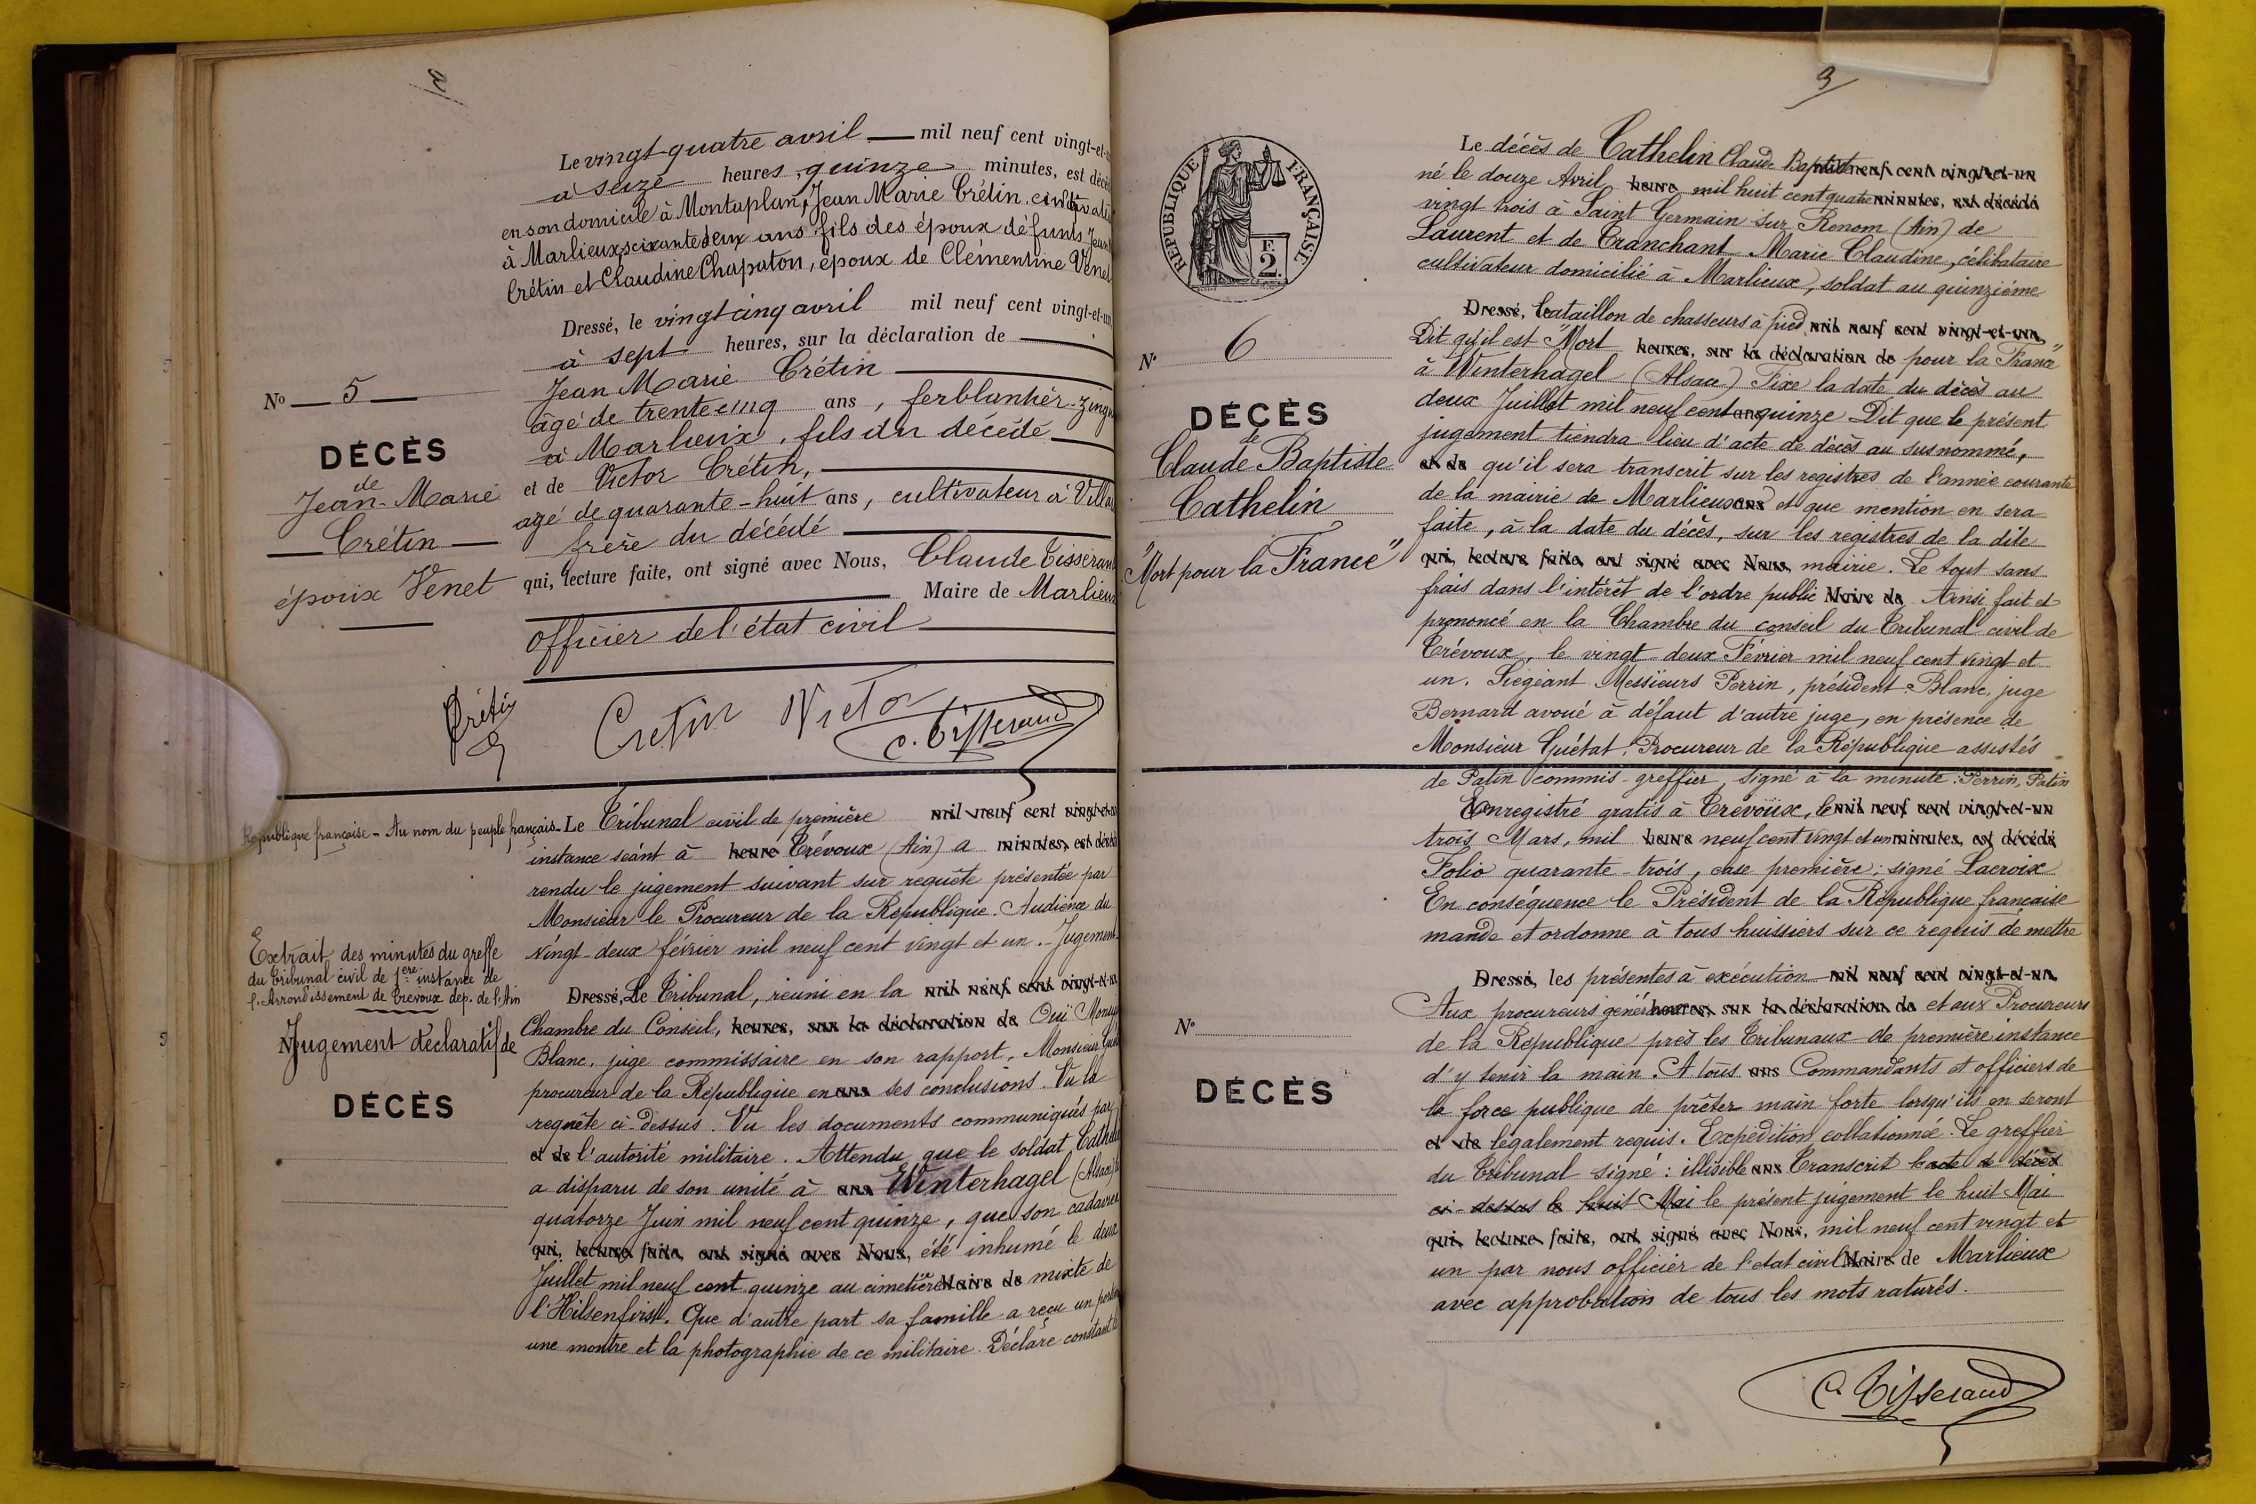 2
Le vingt-quatre avril — mil neuf cent vingt-et-
à seize heures, quinze minutes, est décé
en son domicile à Montaplan, Jean Marie Crétin, cultivate
à Marlieux, soixante deux ans fils des époux défunts Jean
Crétin et Claudine Chapaton, époux de Clémentine Venet
Dressé, le vingt cinq avril mil neuf cent vingt-et-un
à sept heures, sur la déclaration de
Jean Marie Crétin
âgé de trente cinq ans, ferblantier-zing
à Marlieux, fils du décédé
et de Victor Crétin,
âgé de quarante-huit ans, cultivateur à Villa
frère du décédé
qui, lecture faite, ont signé avec Nous, Claude Tisseran
Maire de Marlieux
officier de l'état civil
No 5
DÉCÈS
de
Jean-Marie
Crétin
époux Venet
Crétin Cretin Victor C. Tisserand
République française - Au nom du peuple français - Le Tribunal civil de première mil neuf cent vingt-et-un
instance séant à heure Trévoux (Ain) a minutes, est décédé
rendu le jugement suivant sur requête présentée par
Monsieur le Procureur de la République. Audience du
vingt-deux février mil neuf cent vingt et un. - Jugement.
Dressé, Le Tribunal, réuni en la mil neuf cent vingt-et-un
Chambre du Conseil, heures, sur la déclaration de Ouï Monsieur
Blanc, juge commissaire en son rapport, Monsieur Gué
procureur de la République en ans ses conclusions. Vu la
requête ci-dessus. Vu les documents communiqués par
et de l'autorité militaire. Attendu que le soldat Cathel
a disparu de son unité à ans Winterhagel (Alsace)
quatorze Juin mil neuf cent quinze, que son cadavre a
qui, lecture faite, ont signé avec Nous, été inhumé le deux
Juillet mil neuf cent quinze au cimetière Maire de mixte de
l'Hilsenfirst. Que d'autre part sa famille a reçu un
une montre et la photographie de ce militaire. Déclare constant
Extrait des minutes du greffe
du tribunal civil de 1ère instance de
l'Arrondissement de Trévoux dép. de l'Ain
Jugement déclaratif de
DÉCÈS
3
RÉPUBLIQUE FRANÇAISE
F.
2.
No 6
DÉCÈS
de
Claude Baptiste
Cathelin
"Mort pour la France"
Le décès de Cathelin Claude Baptiste mil neuf cent vingt-et-un
né le douze Avril heure mil huit cent quatre minutes, est décédé
vingt trois à Saint Germain sur Renom (Ain) de
Laurent et de Tranchant Marie Claudine, célibataire
cultivateur domicilié à Marlieux, soldat au quinzième
Dressé, bataillon de chasseurs à pied mil neuf cent vingt-et-un,
Dit qu'il est "Mort heures, sur la déclaration de pour la France"
à Winterhagel (Alsace) Fixe la date du décès au
deux Juillet mil neuf cent ans quinze Dit que le présent
jugement tiendra lieu d'acte de décès au susnommé,
et de qu'il sera transcrit sur les registres de l'année courante
de la mairie de Marlieux ans et que mention en sera
faite, à la date du décès, sur les registres de la dite
qui, lecture faite, ont signé avec Nous, mairie. Le tout sans
frais dans l'intérêt de l'ordre public Maire de Ainsi fait et
prononcé en la Chambre du conseil du Tribunal civil de
Trévoux, le vingt-deux Février mil neuf cent vingt et
un. Siégeant Messieurs Perrin, président. Blanc, juge
Bernard avoué à défaut d'autre juge, en présence de
Monsieur Guétat, Procureur de la République assistés
de Patin commis-greffier, signé à la minute: Perrin, Patin
Enregistré gratis à Trévoux, le mil neuf cent vingt-et-un
trois Mars, mil heure neuf cent vingt et un minutes, est décédé
Folio quarante-trois, case première; signé Lacroix
En conséquence le Président de la République française
mande et ordonne à tous huissiers sur ce requis de mettre
Dressé, les présentes à exécution mil neuf cent vingt-et-un,
Aux procureurs généraux heures, sur la déclaration de et aux Procureurs
de la République près les Tribunaux de première instance
d'y tenir la main. A tous ans Commandants et officiers de
la force publique de prêter main forte lorsqu'ils en seront
et de légalement requis. Expédition collationnée. Le greffier
du Tribunal signé: illisible ans Transcrit l'acte de décès
ci-dessus le huit Mai le présent jugement le huit Mai
qui, lecture faite, ont signé avec Nous, mil neuf cent vingt et
un par nous officier de l'état civil Maire de Marlieux
avec approbation de tous les mots raturés.
No
DÉCÈS
C. Tisserand